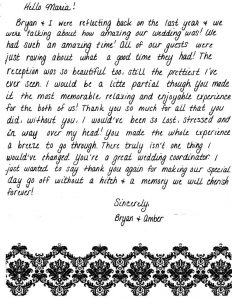 Hello Maria!
Bryan & I were reflecting back on the last year & we
were talking about how amazing our wedding was! We
had such an amazing time! All of our guests were
just raving about what a good time they had! The
reception was so beautiful too, still the prettiest I've
ever seen. I would be a little partial though. You made
it the most memorable, relaxing and enjoyable experience
for the both of us! Thank you so much for all that you
did, without you, I would've been so lost, stressed and
in way over my head! You made the whole experience
a breeze to go through. There truly isn't one thing I
would've changed. You're a great wedding coordinator. I
just wanted to say thank you again for making our special
day go off without a hitch & a memory we will cherish
forever!
Sincerely,
Bryan & Amber